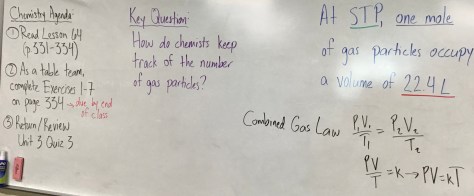 Chemistry Agenda
① Read Lesson 64
(p. 331-334)
② As a table team,
complete Exercises 1-7
on page 334 → due by end
of class
③ Return/Review
Unit 3 Quiz 3
Key Question
How do chemists keep
track of the number
of gas particles?
At STP, one mole
of gas particles occupy
a volume of 22.4 L
Combined Gas Law P₁V₁/T₁ = P₂V₂/T₂
PV/T = k → PV = kT